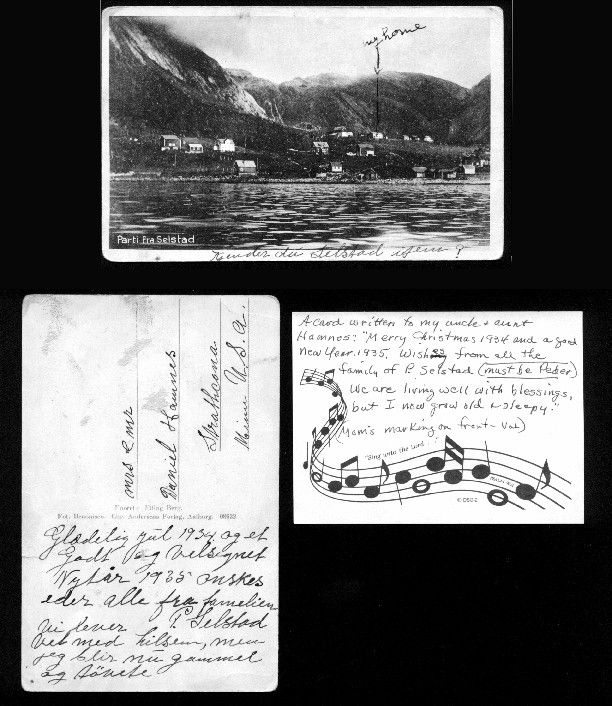 my home
Parti Fra Selstad
Kender du Selstad igen?
mrs & mr
Daniel Hamnes
Strathcona
Minne U.S.A.
Eneret: Elling Berg.
Glædelig jul 1934 og et
Godt og velsignet
Nytår 1935 ønskes
eder alle fra familien
P. Selstad
vi lever
vel med hilsen, men
jeg blir nu gammel
og sövete
A card written to my uncle & aunt
Hamnes: "Merry Christmas 1934 and a good
New Year 1935. Wishes from all the
family of P. Selstad (must be Peder)
We are living well with blessings,
but I now grow old & sleepy."
(Mom's marking on front - Val)
"Sing unto the Lord
© DSC 2